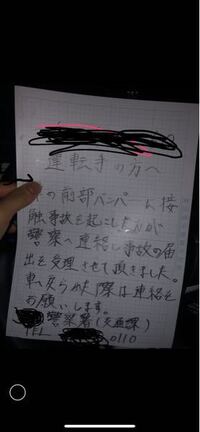 運転手の方へ
の前部バンパーに接
触事故を起こしたため
警察へ連絡し事故の届
出を受理させて頂きました。
車へ戻られた際は連絡を
お願いします。
警察署(交通課)
TEL 0110